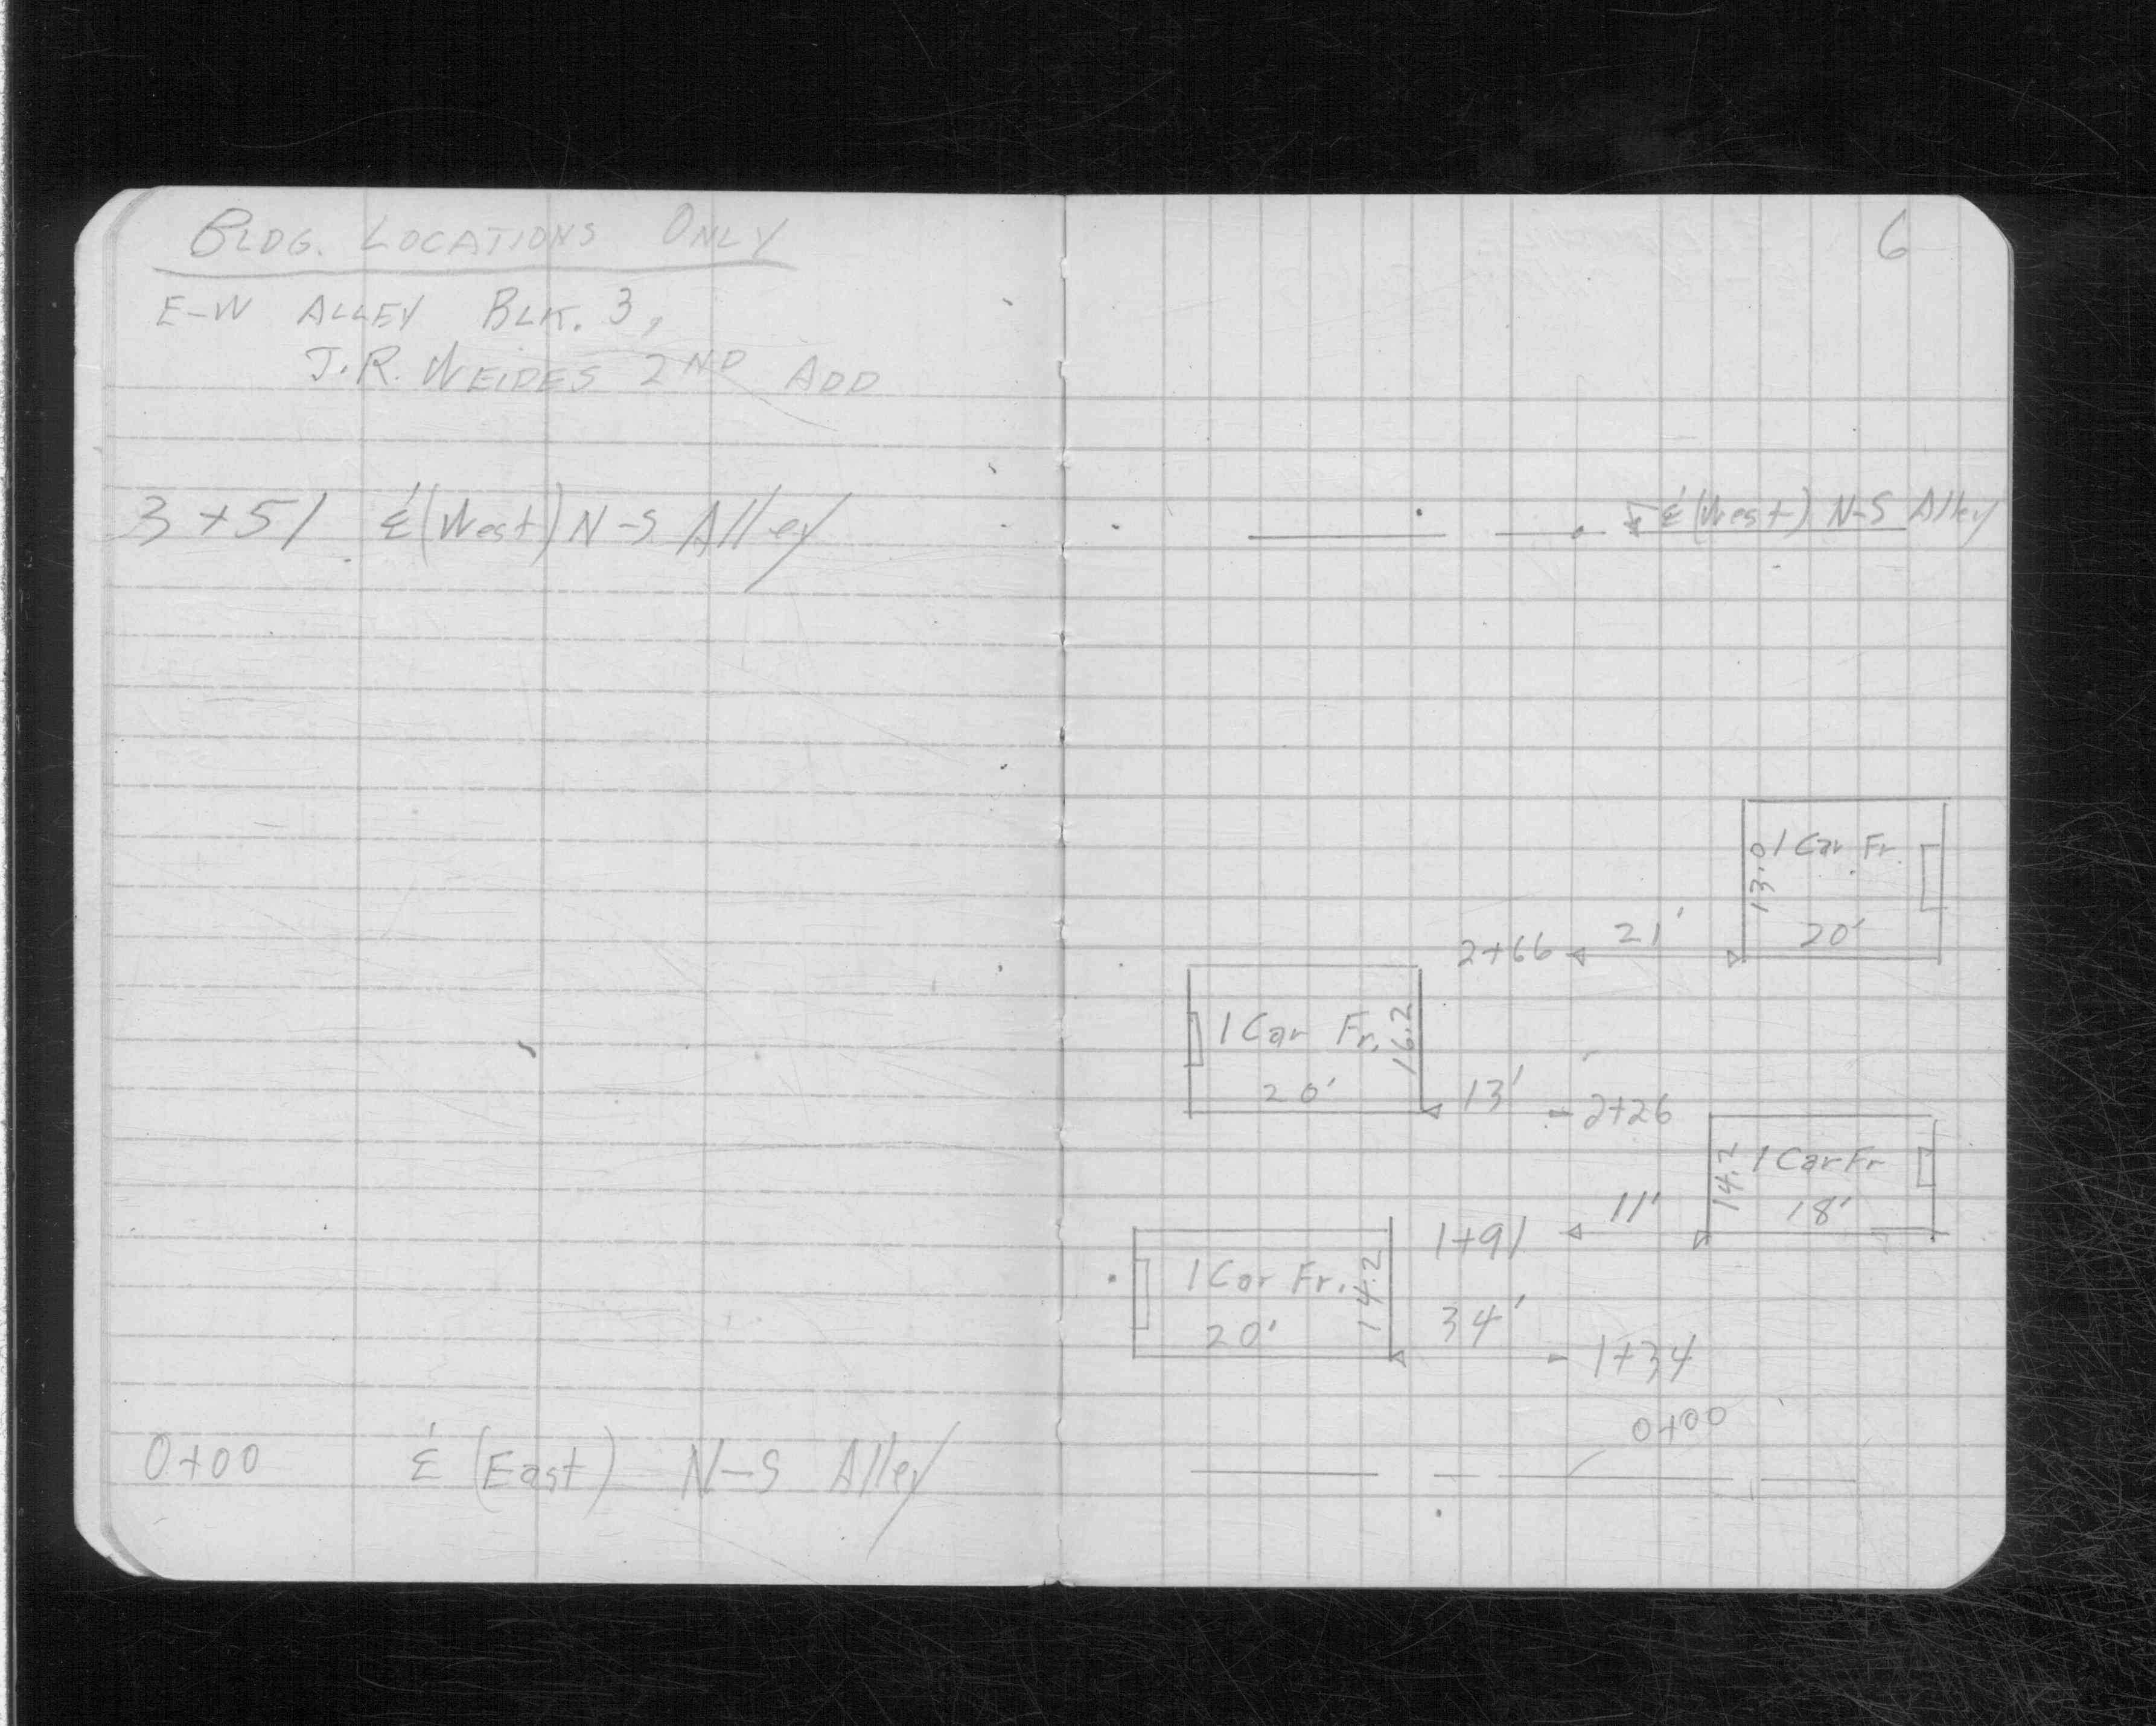 BLDG. LOCATIONS ONLY
E-W ALLEY BLK. 3,
J.R. WEIDES 2ND ADD
3+51 ⅊ (West) N-S Alley
0+00 ⅊ (East) N-S Alley
6
⅊ (West) N-S Alley
1 Car Fr.
13.0
20'
2+66 21'
1 Car Fr. 16.2
20'
13' 2+26
14.2 1 Car Fr
18'
1+91 11'
1 Car Fr. 14.2
20'
34'
1+34
0+00